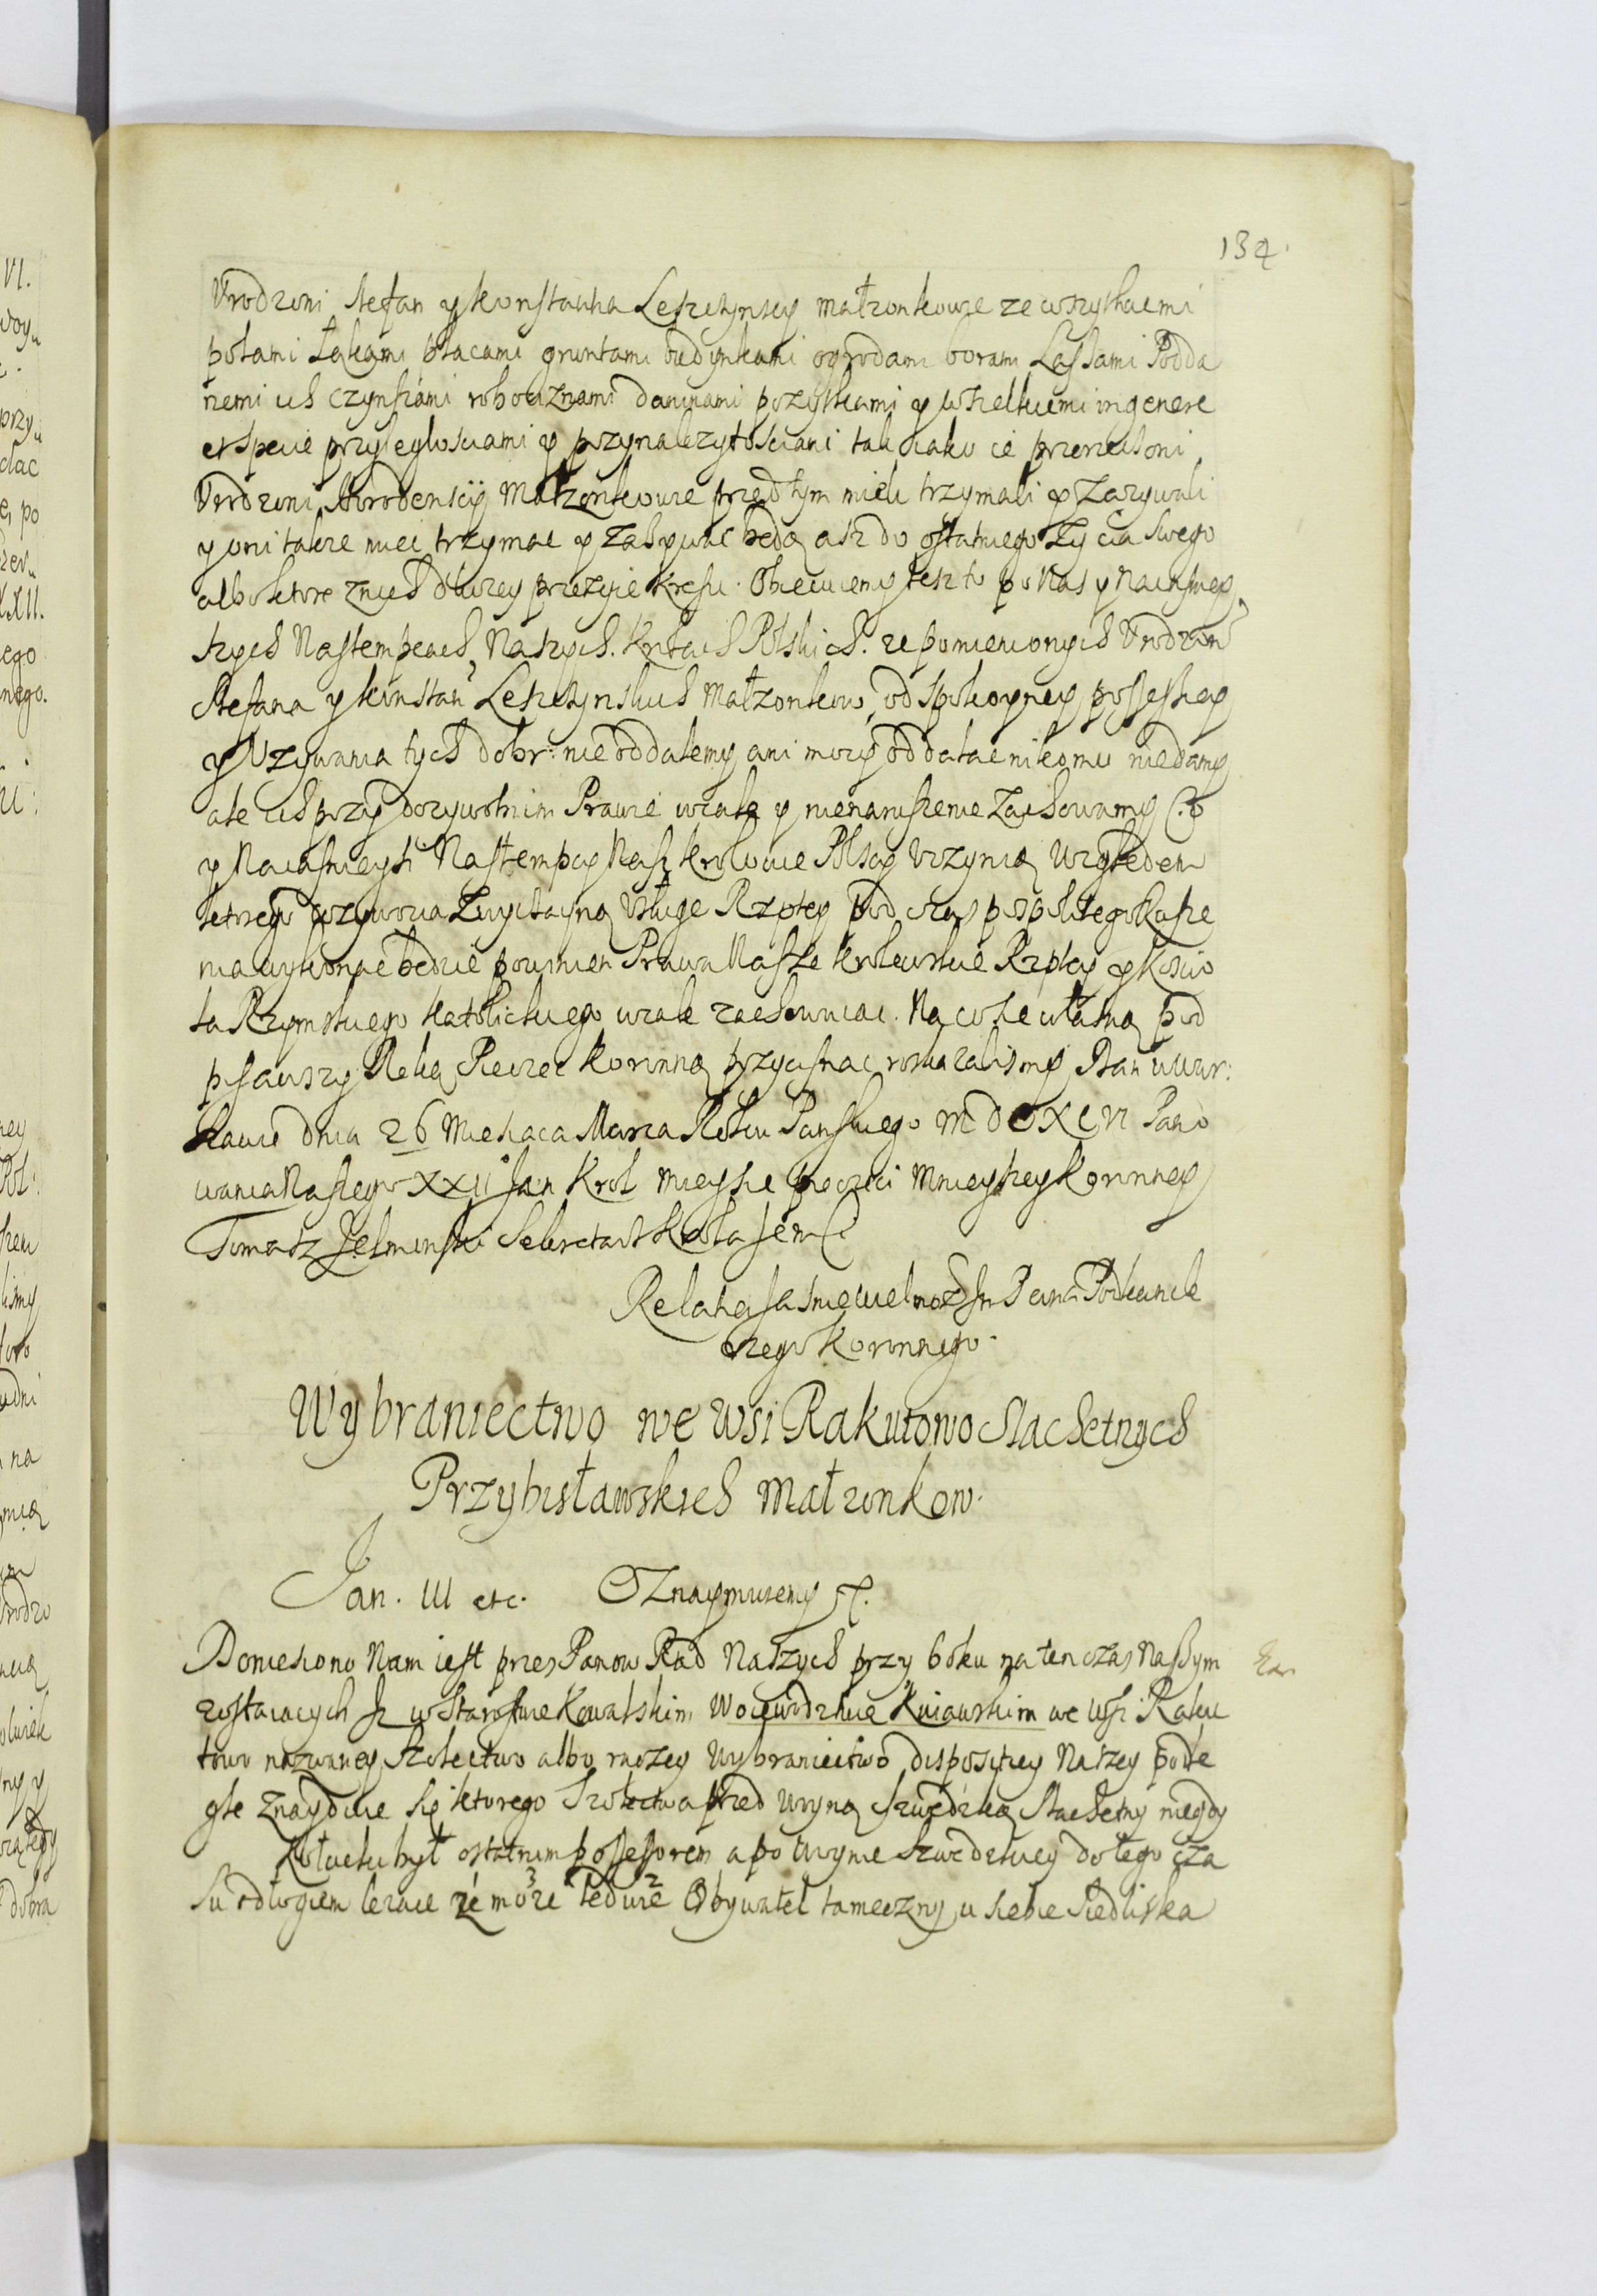 134.
Urodzoni Stefan y Konstantia Leszczynscy małzonkowie ze wszytkiemi
polami Łąkami płacami gruntami budynkami ogrodami borami Lassami Podda
nemi ich czynszami robociznami daninami pozytkami y wszelkiemi in genere
et specie przyległosciami y przynalezytosciami tak iako ie przerzeczoni
Urodzoni Małzonkowie przed tym mieli trzymali y Zazywali
y oni takze miec trzymac y Zazywac będą asz do ostatniego Zycia swego
albo ktore znich dłuzey przezyie kresu. Obiecuiemy tesz to po Nas y Naiasniey
szych Nastempcach Naszych Krolach Polskich. ze pomienionych Urodzon
Stefana y Konstan Leszczynskich Małzonkow, od spokoyney possessyey
y Uzywania tych dobr: nie oddalemy ani mocy oddalac nikomu niedamy
ale ich przy dozywotnim Prawie wcale y nienaruszenie Zachowamy Co
y Naiasnieysi Nastempcy Nasi Krolowie Polscy uczynią Względem
ktorego Zwyczayną Usługe Rzptey pod czas pospolitego Rusze
nia wykonac będzie powinien Prawa Nasze krolewskie Rzptey y Koscio
ła Rzymskiego Katolickiego wcale zachowuiac. Na co sie własną pod
pisawszy Ręką Pieczec Koronną przycisnąc roskazalismy Dan w War:
szawie dnia 26 Miesiaca Marca Roku Panskiego M D C XC VI Pano
wania Naszego XXII Jan Krol mieysce pieczęci Mnieyszey Koronney
Tomasz Sekretarz
Relatia Jasnie Wielmoz Jm Pana Podkancle
rzego Koronnego.
Wybraniectwo we wsi Rakutowo Slachetnych
Przybisławskich Małzonkow.
Jan. III etc. Oznaymuiemy etc.
Doniesiono Nam iest przez Panow Rad Naszych przy boku na ten czas Naszym
zostaiacych Jz w Starostwie Kowalskim Woiewodztwie Kuiawskim we Wsi Raku
towo nazwaney Szołectwo albo raczey Wybraniectwo dispositiey Naszey podle
głe Znayduie Się ktorego Szołectwa przed Woyną Szwedzką Slachetny niegdy
był ostatnim possessorem a po Woynie Szwedzkiey do tego cza
su odłogiem lezace ze moze 3 ledwie 2 Obywatel tameczny u siebie siedliska